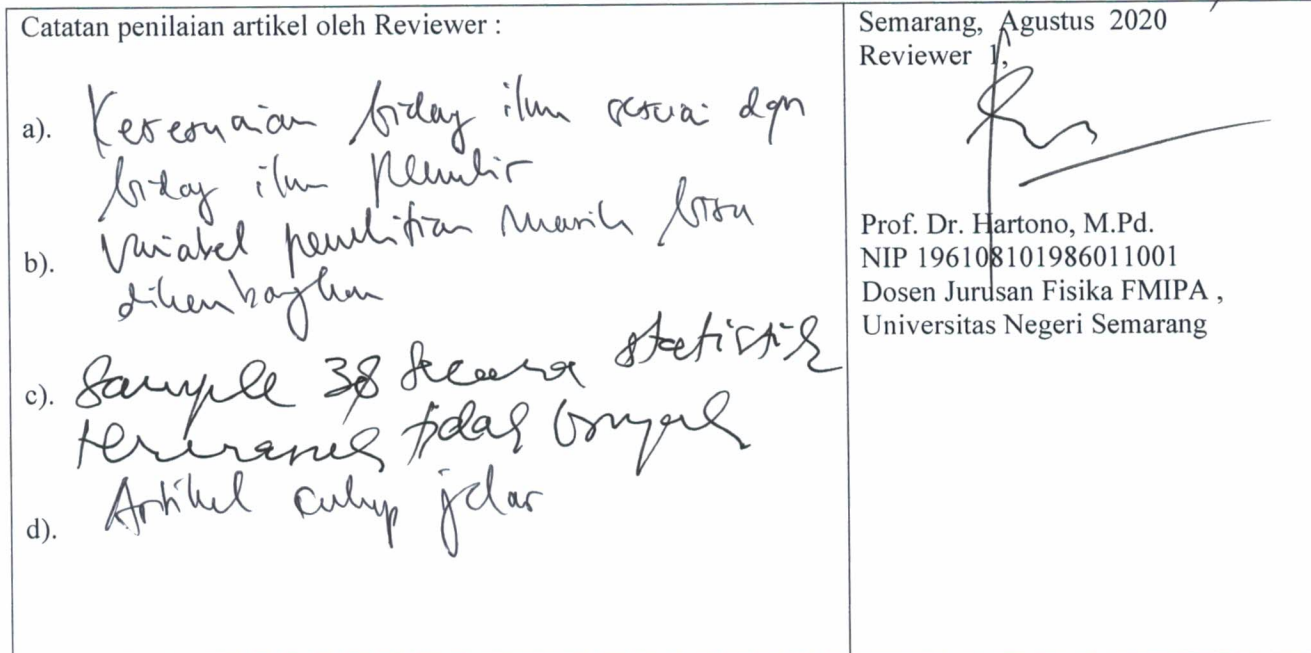 Catatan penilaian artikel oleh Reviewer :
a). Kesesuaian bidang ilmu sesuai dgn
bidang ilmu penulis
b). Variabel penelitian masih bisa
dikembangkan
c). Sample 38 secara statistik
tidak banyak
d). Artikel cukup jelas
Semarang, Agustus 2020
Reviewer 1,
Prof. Dr. Hartono, M.Pd.
NIP 196108101986011001
Dosen Jurusan Fisika FMIPA ,
Universitas Negeri Semarang